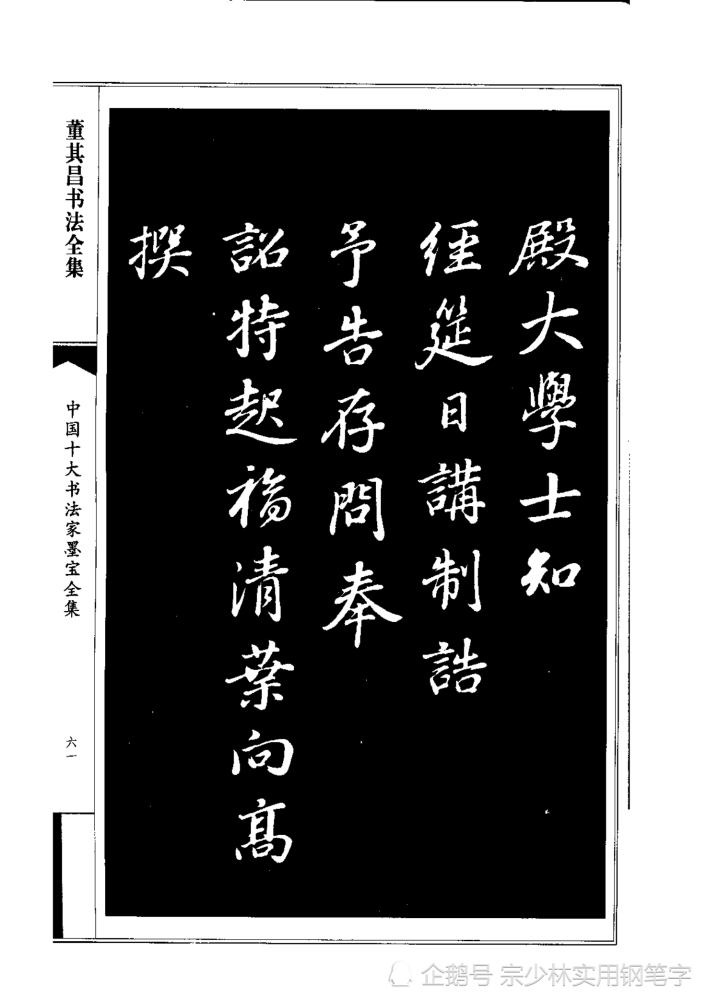 殿大學士知
經筵日講制誥
予告存問奉
詔特起福清葉向高
撰
董其昌书法全集
中国十大书法家墨宝全集
六一
企鹅号 宗少林实用钢笔字